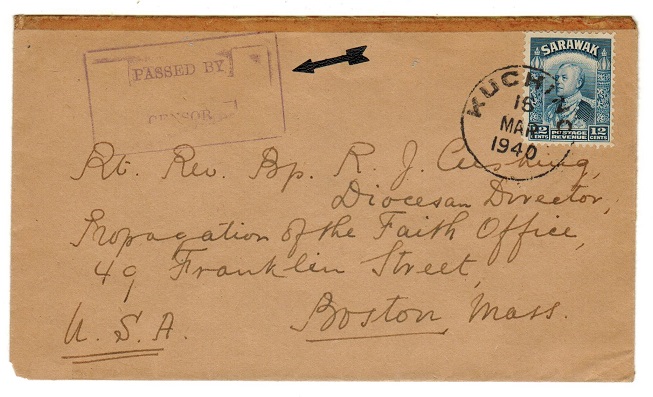 PASSED BY
CENSOR
SARAWAK
12 CENTS POSTAGE REVENUE 12 CENTS
KUCHING
18
MAR
1940
Rt. Rev. Bp. R. J. Cushing,
Diocesan Director,
Propagation of the Faith Office,
49 Franklin Street,
Boston, Mass.
U.S.A.